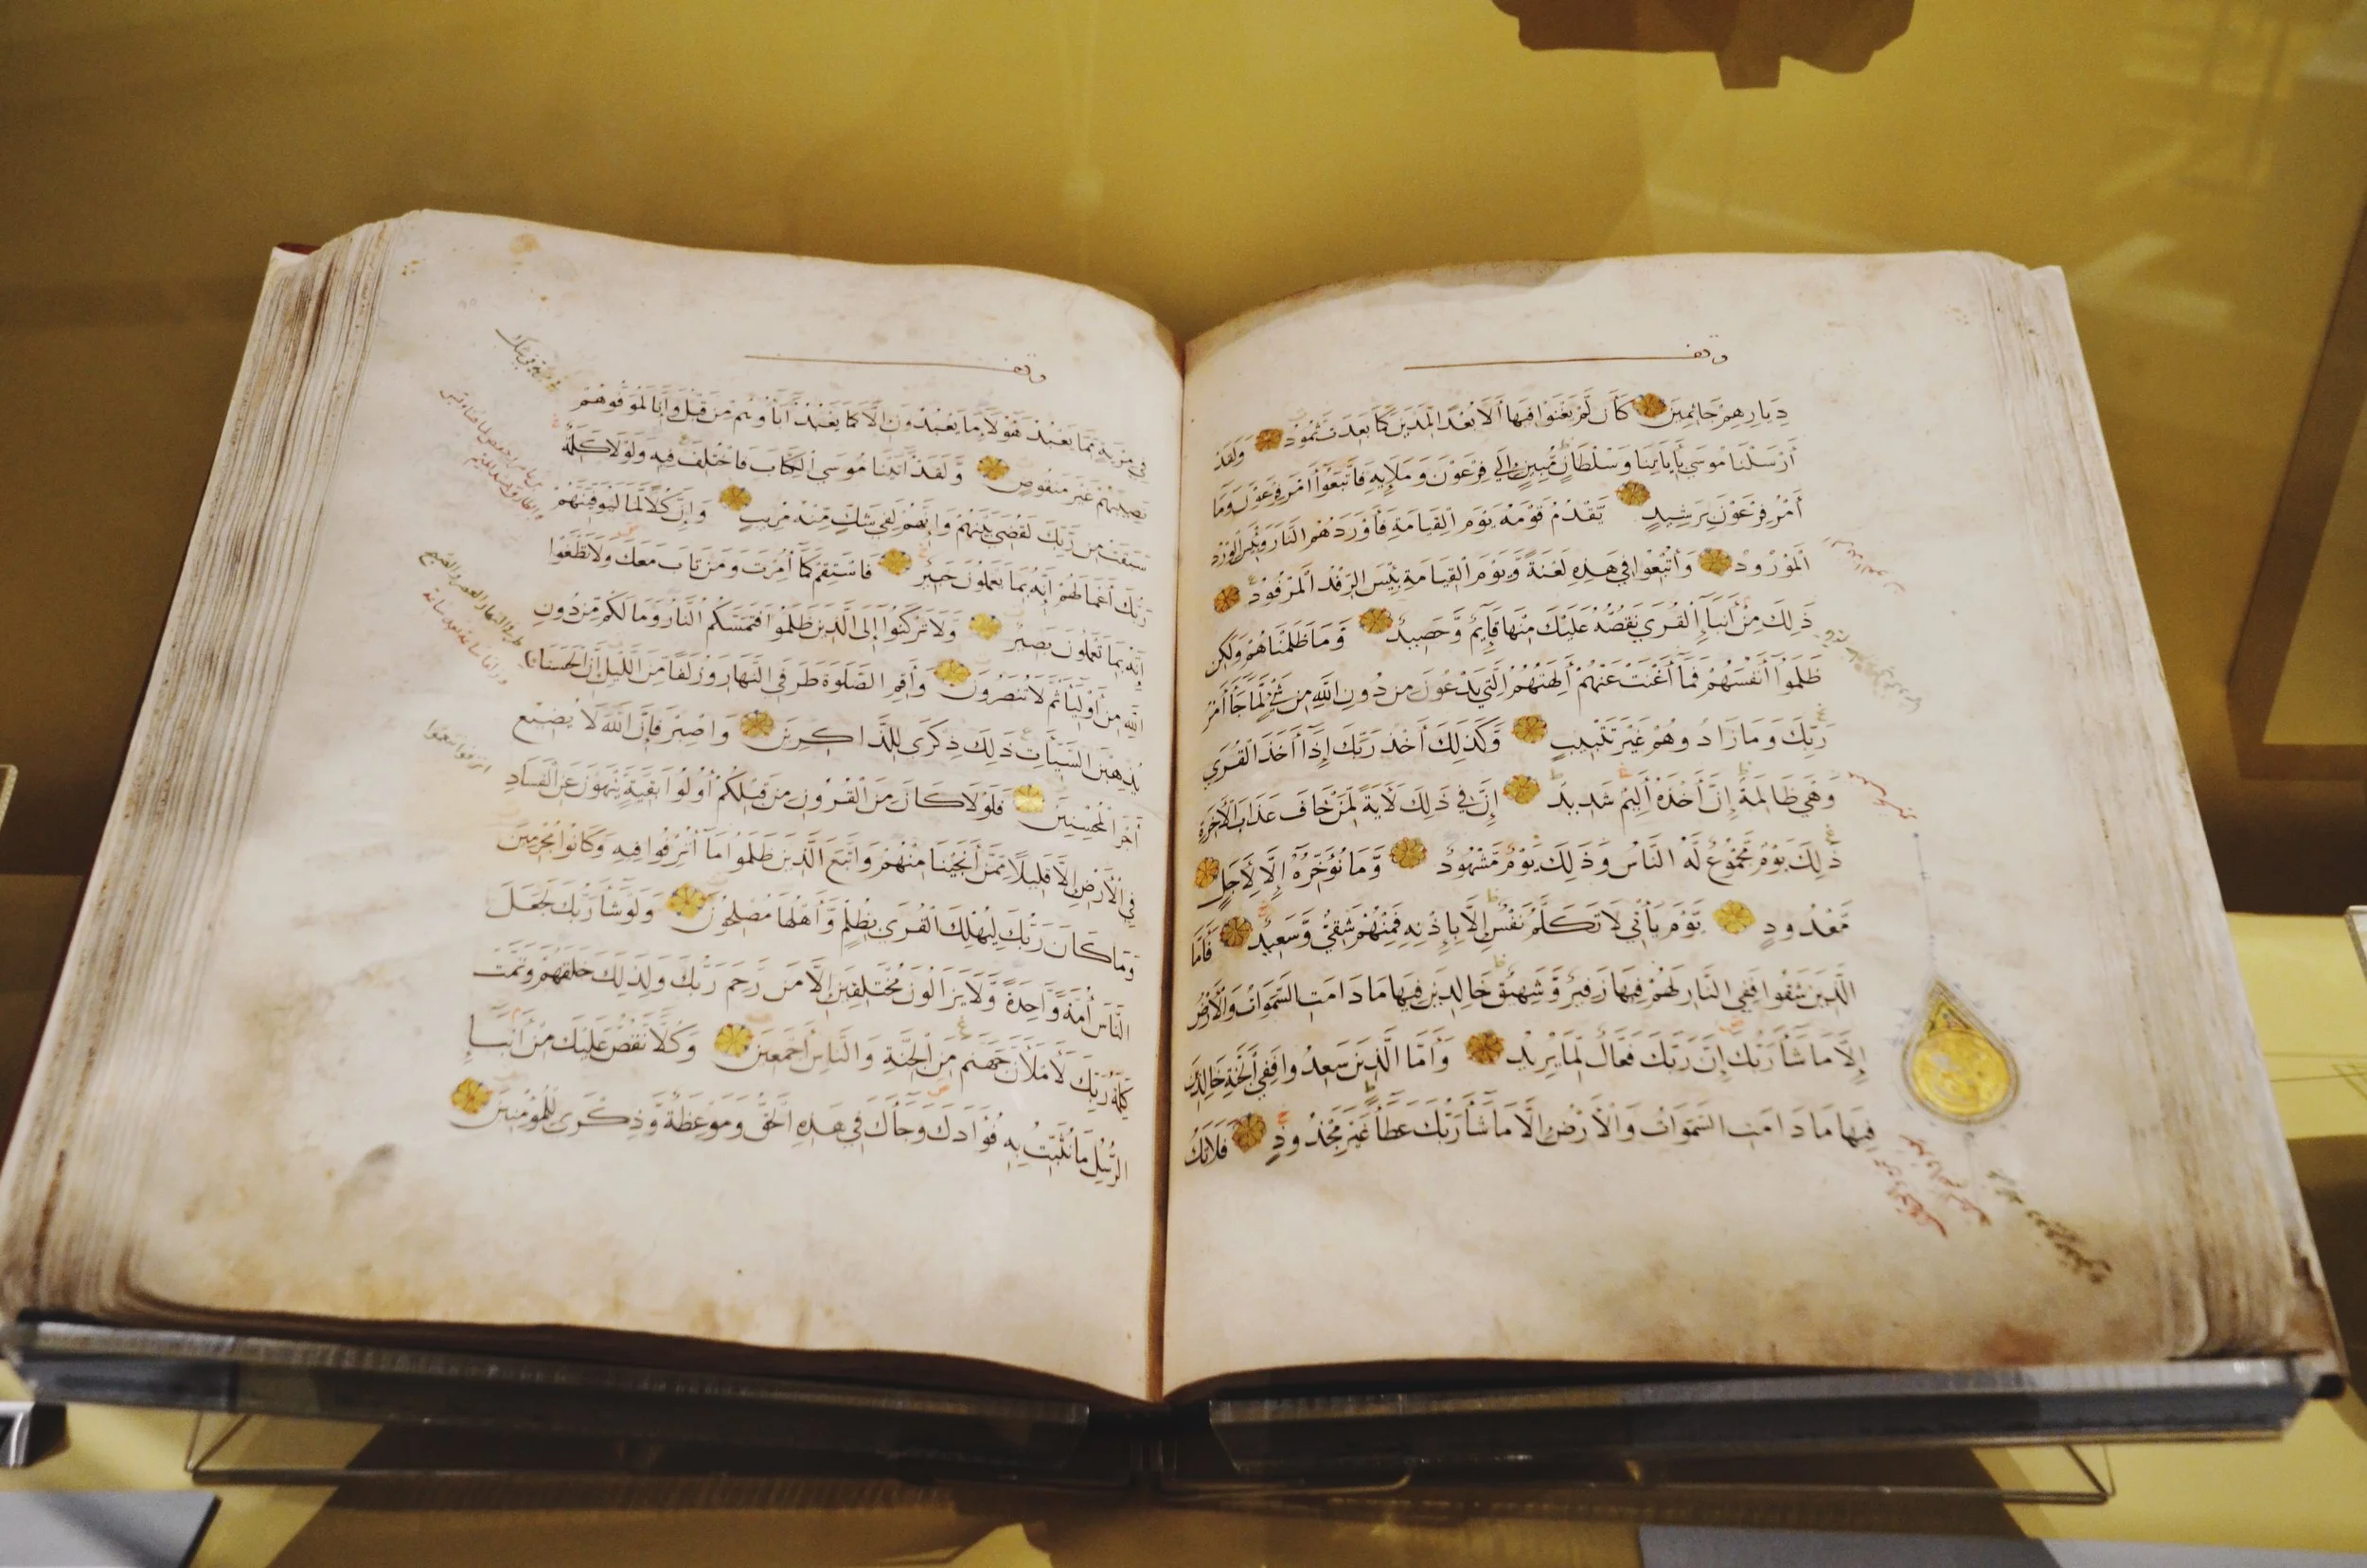 وقف
دِيَارِهِمْ جَاثِمِينَ كَأَن لَّمْ يَغْنَوْا فِيهَا أَلَا بُعْدًا لِّمَدْيَنَ كَمَا بَعِدَتْ ثَمُودُ وَلَقَدْ
أَرْسَلْنَا مُوسَى بِآيَاتِنَا وَسُلْطَانٍ مُّبِينٍ إِلَى فِرْعَوْنَ وَمَلَإِيهِ فَاتَّبَعُوا أَمْرَ فِرْعَوْنَ وَمَا
أَمْرُ فِرْعَوْنَ بِرَشِيدٍ يَقْدُمُ قَوْمَهُ يَوْمَ الْقِيَامَةِ فَأَوْرَدَهُمُ النَّارَ وَبِئْسَ الْوِرْدُ
الْمَوْرُودُ وَأُتْبِعُوا فِي هَذِهِ لَعْنَةً وَيَوْمَ الْقِيَامَةِ بِئْسَ الرِّفْدُ الْمَرْفُودُ
ذَلِكَ مِنْ أَنبَاءِ الْقُرَى نَقُصُّهُ عَلَيْكَ مِنْهَا قَائِمٌ وَحَصِيدٌ وَمَا ظَلَمْنَاهُمْ وَلَكِن
ظَلَمُوا أَنفُسَهُمْ فَمَا أَغْنَتْ عَنْهُمْ آلِهَتُهُمُ الَّتِي يَدْعُونَ مِن دُونِ اللَّهِ مِن شَيْءٍ لَّمَّا جَاءَ أَمْرُ
رَبِّكَ وَمَا زَادُوهُمْ غَيْرَ تَتْبِيبٍ وَكَذَلِكَ أَخْذُ رَبِّكَ إِذَا أَخَذَ الْقُرَى
وَهِيَ ظَالِمَةٌ إِنَّ أَخْذَهُ أَلِيمٌ شَدِيدٌ إِنَّ فِي ذَلِكَ لَآيَةً لِّمَنْ خَافَ عَذَابَ الْآخِرَةِ
ذَلِكَ يَوْمٌ مَّجْمُوعٌ لَّهُ النَّاسُ وَذَلِكَ يَوْمٌ مَّشْهُودٌ وَمَا نُؤَخِّرُهُ إِلَّا لِأَجَلٍ
مَّعْدُودٍ يَوْمَ يَأْتِي لَا تَكَلَّمُ نَفْسٌ إِلَّا بِإِذْنِهِ فَمِنْهُمْ شَقِيٌّ وَسَعِيدٌ فَأَمَّا
الَّذِينَ شَقُوا فَفِي النَّارِ لَهُمْ فِيهَا زَفِيرٌ وَشَهِيقٌ خَالِدِينَ فِيهَا مَا دَامَتِ السَّمَوَاتُ وَالْأَرْضُ
إِلَّا مَا شَاءَ رَبُّكَ إِنَّ رَبَّكَ فَعَّالٌ لِّمَا يُرِيدُ وَأَمَّا الَّذِينَ سَعِدُوا فَفِي الْجَنَّةِ خَالِدِينَ
فِيهَا مَا دَامَتِ السَّمَوَاتُ وَالْأَرْضُ إِلَّا مَا شَاءَ رَبُّكَ عَطَاءً غَيْرَ مَجْذُوذٍ فَلَا تَكُ
وقف
فِي مِرْيَةٍ مِّمَّا يَعْبُدُ هَؤُلَاءِ مَا يَعْبُدُونَ إِلَّا كَمَا يَعْبُدُ آبَاؤُهُم مِّن قَبْلُ وَإِنَّا لَمُوَفُّوهُمْ
نَصِيبَهُمْ غَيْرَ مَنقُوصٍ وَلَقَدْ آتَيْنَا مُوسَى الْكِتَابَ فَاخْتُلِفَ فِيهِ وَلَوْلَا كَلِمَةٌ
سَبَقَتْ مِن رَّبِّكَ لَقُضِيَ بَيْنَهُمْ وَإِنَّهُمْ لَفِي شَكٍّ مِّنْهُ مُرِيبٍ وَإِنَّ كُلًّا لَّمَّا لَيُوَفِّيَنَّهُمْ
رَبُّكَ أَعْمَالَهُمْ إِنَّهُ بِمَا يَعْمَلُونَ خَبِيرٌ فَاسْتَقِمْ كَمَا أُمِرْتَ وَمَن تَابَ مَعَكَ وَلَا تَطْغَوْا
إِنَّهُ بِمَا تَعْمَلُونَ بَصِيرٌ وَلَا تَرْكَنُوا إِلَى الَّذِينَ ظَلَمُوا فَتَمَسَّكُمُ النَّارُ وَمَا لَكُم مِّن دُونِ
اللَّهِ مِنْ أَوْلِيَاءَ ثُمَّ لَا تُنصَرُونَ وَأَقِمِ الصَّلَوةَ طَرَفَيِ النَّهَارِ وَزُلَفًا مِّنَ اللَّيْلِ إِنَّ الْحَسَنَاتِ
يُذْهِبْنَ السَّيِّئَاتِ ذَلِكَ ذِكْرَى لِلذَّاكِرِينَ وَاصْبِرْ فَإِنَّ اللَّهَ لَا يُضِيعُ
أَجْرَ الْمُحْسِنِينَ فَلَوْلَا كَانَ مِنَ الْقُرُونِ مِن قَبْلِكُمْ أُولُوا بَقِيَّةٍ يَنْهَوْنَ عَنِ الْفَسَادِ
فِي الْأَرْضِ إِلَّا قَلِيلًا مِّمَّنْ أَنجَيْنَا مِنْهُمْ وَاتَّبَعَ الَّذِينَ ظَلَمُوا مَا أُتْرِفُوا فِيهِ وَكَانُوا مُجْرِمِينَ
وَمَا كَانَ رَبُّكَ لِيُهْلِكَ الْقُرَى بِظُلْمٍ وَأَهْلُهَا مُصْلِحُونَ وَلَوْ شَاءَ رَبُّكَ لَجَعَلَ
النَّاسَ أُمَّةً وَاحِدَةً وَلَا يَزَالُونَ مُخْتَلِفِينَ إِلَّا مَن رَّحِمَ رَبُّكَ وَلِذَلِكَ خَلَقَهُمْ وَتَمَّتْ
كَلِمَةُ رَبِّكَ لَأَمْلَأَنَّ جَهَنَّمَ مِنَ الْجِنَّةِ وَالنَّاسِ أَجْمَعِينَ وَكُلًّا نَّقُصُّ عَلَيْكَ مِنْ أَنبَاءِ
الرُّسُلِ مَا نُثَبِّتُ بِهِ فُؤَادَكَ وَجَاءَكَ فِي هَذِهِ الْحَقُّ وَمَوْعِظَةٌ وَذِكْرَى لِلْمُؤْمِنِينَ